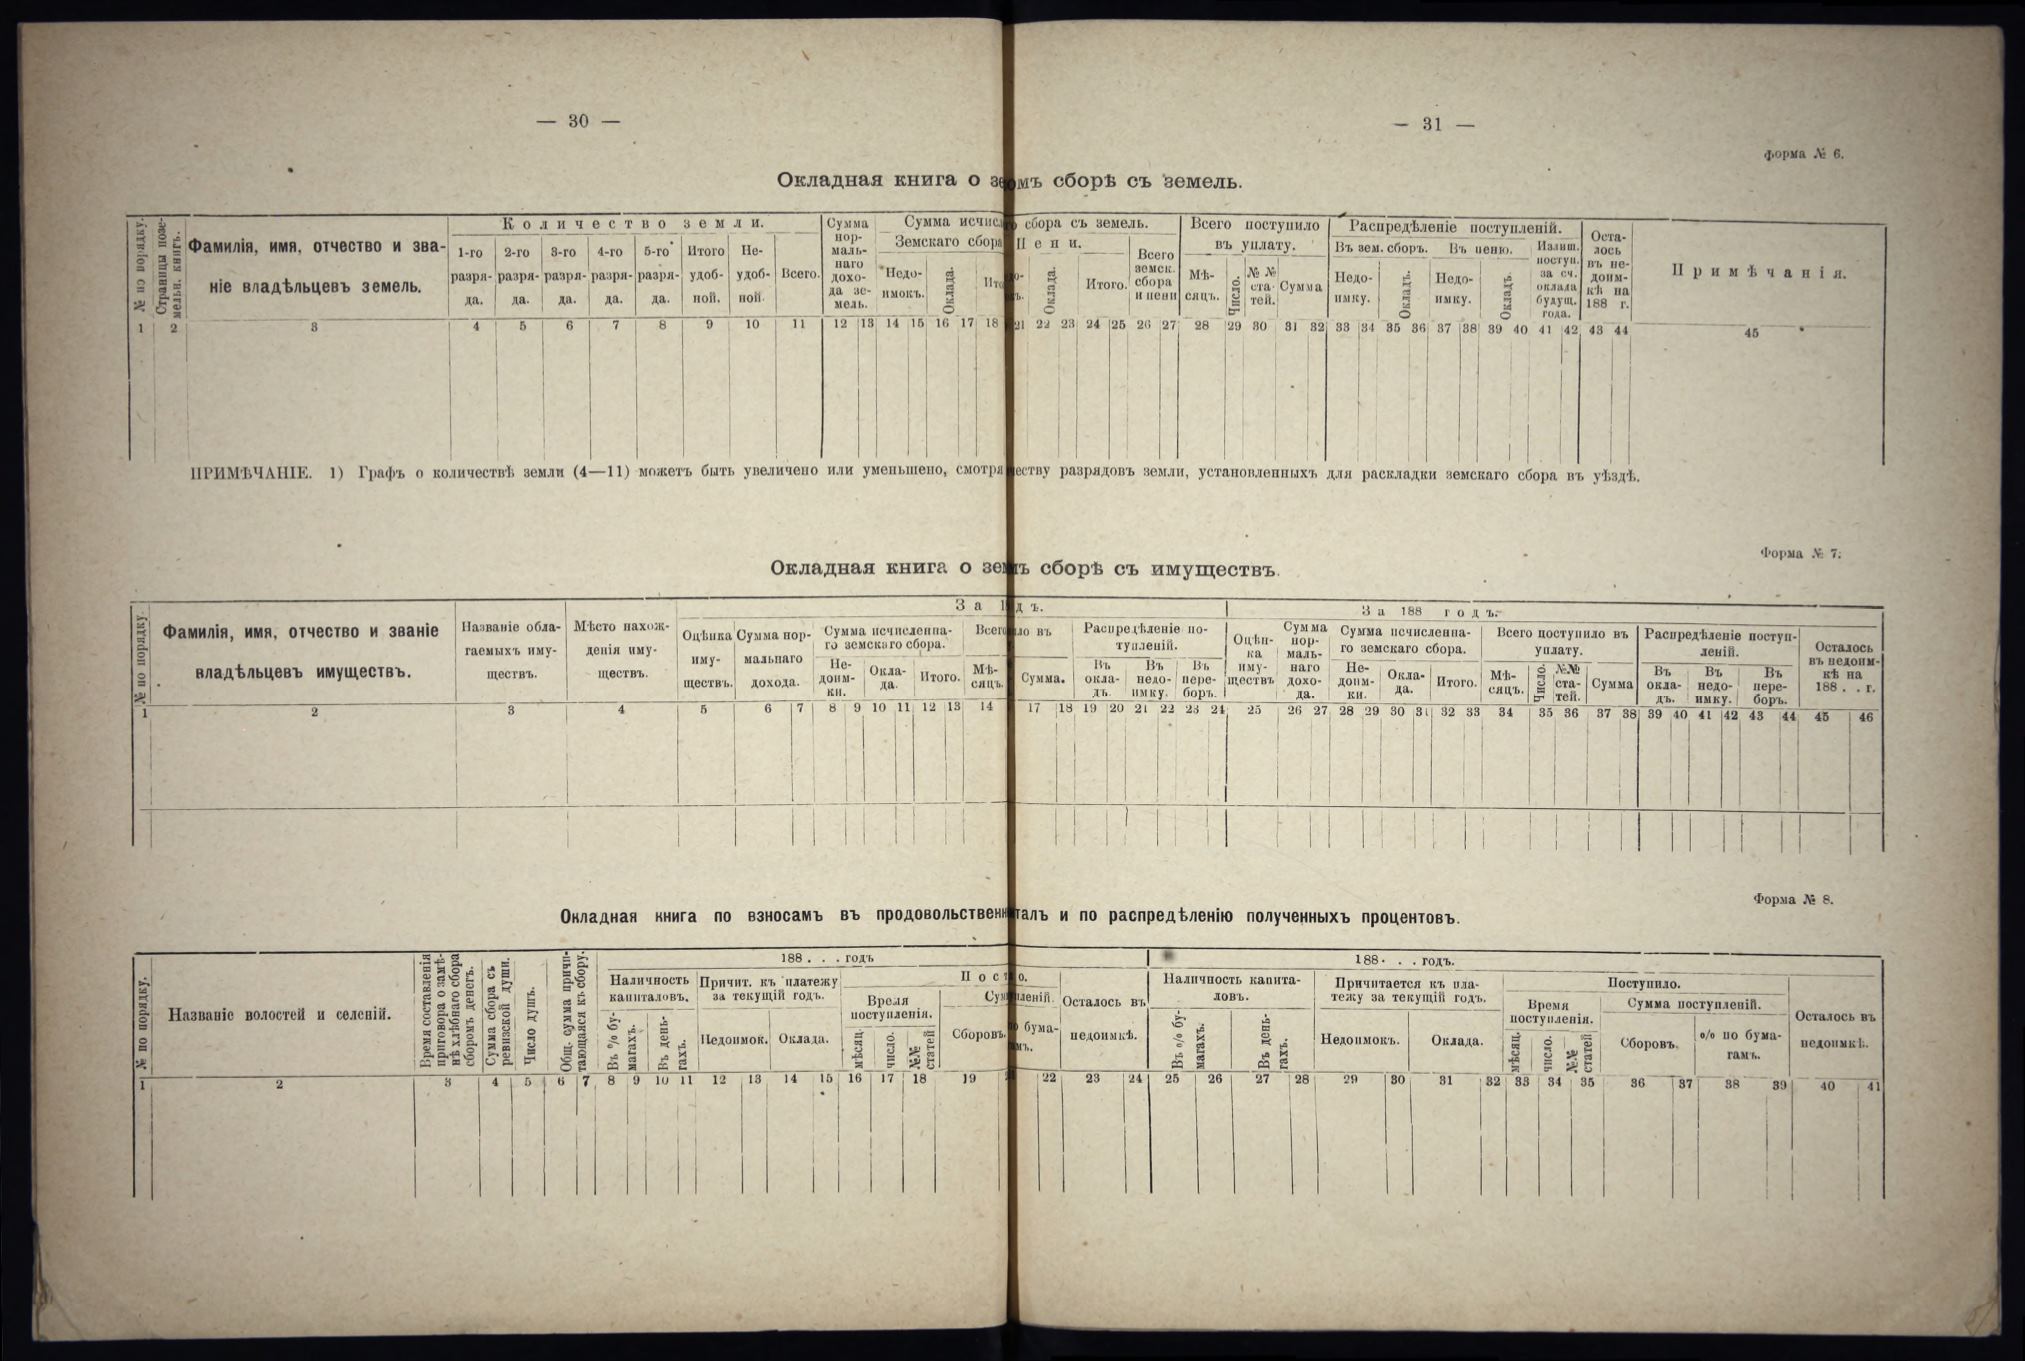 — 30 —
— 31 —
Форма № 6.
Окладная книга о зе мъ сборѣ съ земель.
№ по порядку.
Страницы позе-
мельн. книгъ.
Фамилія, имя, отчество и зва-
ніе владѣльцевъ земель.
Количество земли.
1-го разря-
да.
2-го разря-
да.
3-го разря-
да.
4-го разря-
да.
5-го разря-
да.
Итого удоб-
ной.
Не-
удоб-
ной.
Всего.
Сумма
нор-
маль-
наго
дохо-
да зе-
мель.
Сумма исчис сбора съ земель.
Земскаго сбора
Недо-
имокъ.
Оклада.
Ито
Пени.
Оклада.
Итого.
Всего
земск.
сбора
и пени
Всего поступило
въ уплату.
Мѣ-
сяцъ.
Число.
№ №
ста-
тей.
Сумма
Распредѣленіе поступленій.
Въ зем. сборъ.
Недо-
имку.
Окладъ.
Въ пеню.
Недо-
имку.
Окладъ.
Излиш.
поступ.
за сч.
оклада
будущ.
года.
Оста-
лось
въ не-
доим-
кѣ на
188 г.
Примѣчанія.
1 2 3 4 5 6 7 8 9 10 11 12 13 14 15 16 17 18 21 22 23 24 25 26 27 28 29 30 31 32 33 34 35 36 37 38 39 40 41 42 43 44 45
ПРИМѢЧАНІЕ. 1) Графъ о количествѣ земли (4—11) можетъ быть увеличено или уменьшено, смотря еству разрядовъ земли, установленныхъ для раскладки земскаго сбора въ уѣздѣ.
Форма № 7.
Окладная книга о зем ъ сборѣ съ имуществъ.
№ по порядку.
Фамилія, имя, отчество и званіе
владѣльцевъ имуществъ.
Названіе обла-
гаемыхъ иму-
ществъ.
Мѣсто нахож-
денія иму-
ществъ.
За 1 дъ.
Оцѣнка
иму-
ществъ.
Сумма нор-
мальнаго
дохода.
Сумма исчисленна-
го земскаго сбора.
Не-
доим-
ки.
Окла-
да.
Итого.
Всего ло въ
Мѣ-
сяцъ.
Сумма.
Распредѣленіе по-
ступленій.
Въ
окла-
дъ.
Въ
недо-
имку.
Въ
пере-
боръ.
За 188 годъ.
Оцѣн-
ка
иму-
ществъ
Сумма
нор-
маль-
наго
дохо-
да.
Сумма исчисленна-
го земскаго сбора.
Не-
доим-
ки.
Окла-
да.
Итого.
Всего поступило въ
уплату.
Мѣ-
сяцъ.
Число.
№№
ста-
тей.
Сумма
Распредѣленіе поступ-
леній.
Въ
окла-
дъ.
Въ
недо-
имку.
Въ
пере-
боръ.
Осталось
въ недоим-
кѣ на
188 . . г.
1 2 3 4 5 6 7 8 9 10 11 12 13 14 17 18 19 20 21 22 23 24 25 26 27 28 29 30 31 32 33 34 35 36 37 38 39 40 41 42 43 44 45 46
Форма № 8.
Окладная книга по взносамъ въ продовольственн талъ и по распредѣленію полученныхъ процентовъ.
№ по порядку.
Названіе волостей и селеній.
Время составленія
приговора о замѣ-
нѣ хлѣбнаго сбора
сборомъ денегъ.
Сумма сбора съ
ревизской души.
Число душъ.
Общ. сумма причи-
тающаяся къ сбору.
188 . . . годъ
Наличность
капиталовъ.
Въ % бу-
магахъ.
Въ день-
гахъ.
Причит. къ платежу
за текущій годъ.
Недоимок.
Оклада.
Пост о.
Время
поступленія.
мѣсяц.
число.
№№
статей
Сум пленій.
Сборовъ.
бума-
мъ.
Осталось въ
недоимкѣ.
188 . . . годъ.
Наличность капита-
ловъ.
Въ % бу-
магахъ.
Въ день-
гахъ.
Причитается къ пла-
тежу за текущій годъ.
Недоимокъ.
Оклада.
Поступило.
Время
поступленія.
мѣсяц.
число.
№№
статей
Сумма поступленій.
Сборовъ.
% по бума-
гамъ.
Осталось въ
недоимкѣ.
1 2 3 4 5 6 7 8 9 10 11 12 13 14 15 16 17 18 19 22 23 24 25 26 27 28 29 30 31 32 33 34 35 36 37 38 39 40 41